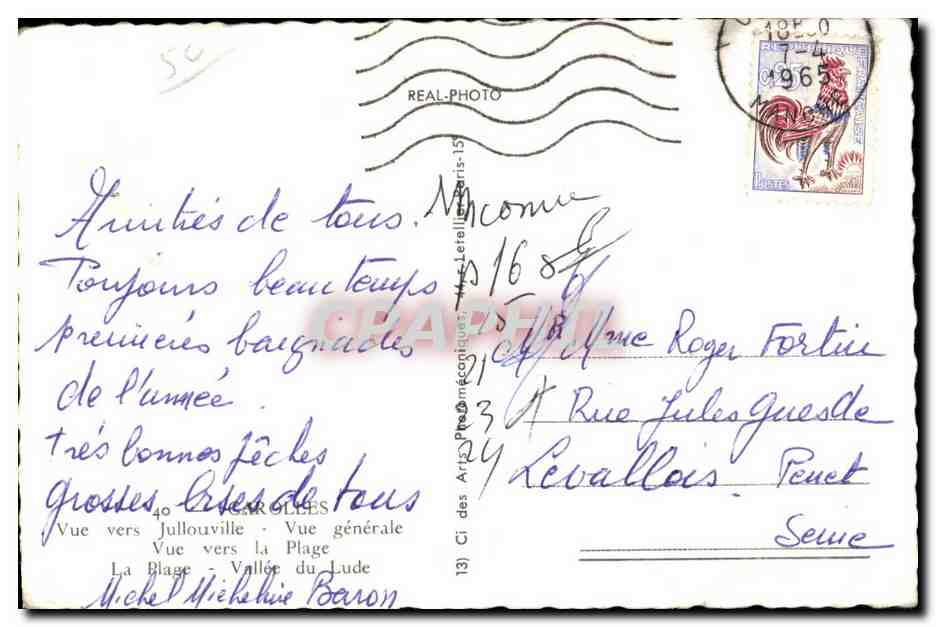 50
REAL-PHOTO
18H30
7-4
1965
REPUBLIQUE FRANCAISE
0,25
POSTES
Amitiés de tous.
Toujours beau temps
premières baignades
de l'année.
très bonnes pêches
grosses bises de tous
40 CAROLLES
Vue vers Jullouville - Vue générale
Vue vers la Plage
La Plage - Vallée du Lude
Michel Micheline Baron
13) Ci des Arts Photomécaniques, Letellier, Paris-15e
Inconnu
16
21
23
24
CPAPHIL
Mr Mme Roger Fortin
Rue Jules Guesde
Levallois. Perret
Seine